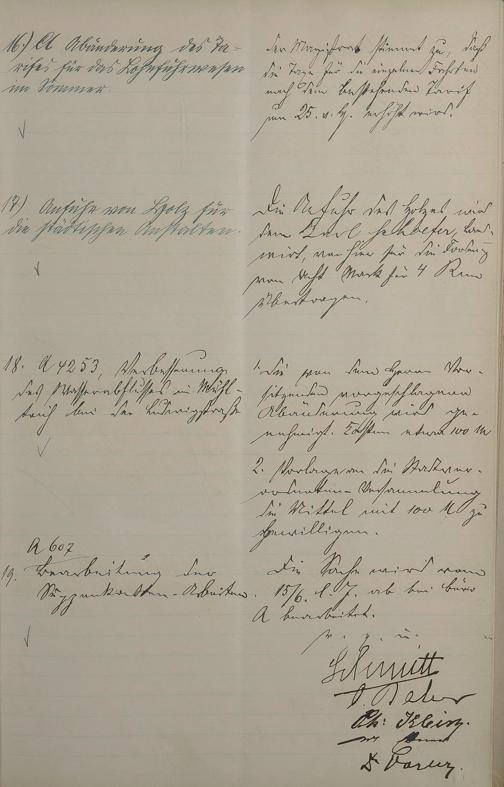 16.) Ct Abänderung des Ta-
rifes für das Lohnfuhrwesen
im Sommer.
der Magistrat stimmt zu, daß
die Taxe für die einzelnen Fahrten
nach dem bestehenden Tarif
um 25 v. H. erhöht wird.
17.) Anfuhr von Holz für
die städtischen Anstalten.
Die Anfuhr des Holzes wird
dem Karl Land-
wirt, von hier für die Forderung
von Acht Mark für 4 Rm
übertragen.
18. A 4253, Verbesserung
des Wasserabflusses im Mühl-
teich bei der Ludwigstraße
1. Die von dem Herrn Vor-
sitzenden vorgeschlagene
Abänderung wird ge-
nehmigt. Kosten etwa 100 M
2. Vorlage an die Stadtver-
ordneten-Versammlung
die Mittel mit 100 M zu
bewilligen.
A 607
19. Bearbeitung der
Suppenkosten-Arbeiten.
Die Sache wird vom
15/6. l. J. ab bei Büro
A bearbeitet.
v. g. u.
Schmitt